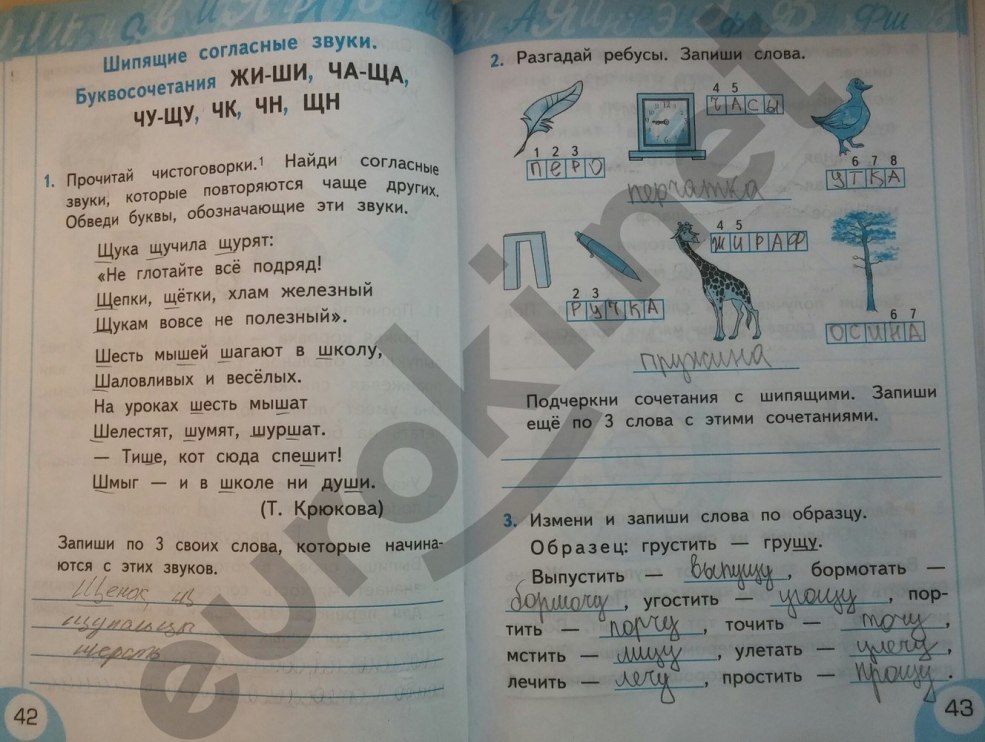 Шипящие согласные звуки.
Буквосочетания ЖИ-ШИ, ЧА-ЩА,
ЧУ-ЩУ, ЧК, ЧН, ЩН
1. Прочитай чистоговорки.¹ Найди согласные
звуки, которые повторяются чаще других.
Обведи буквы, обозначающие эти звуки.
Щука щучила щурят:
«Не глотайте всё подряд!
Щепки, щётки, хлам железный
Щукам вовсе не полезный».
Шесть мышей шагают в школу,
Шаловливых и весёлых.
На уроках шесть мышат
Шелестят, шумят, шуршат.
— Тише, кот сюда спешит!
Шмыг — и в школе ни души.
(Т. Крюкова)
Запиши по 3 своих слова, которые начина-
ются с этих звуков.
Щенок,
щупальцы
шерсть
42
2. Разгадай ребусы. Запиши слова.
4 5
ЧАСЫ
1 2 3
ПЕРО
6 7 8
УТКА
перчатка
4 5
ЖИРАФ
2 3
РУЧКА
6 7
ОСИНА
пружина
Подчеркни сочетания с шипящими. Запиши
ещё по 3 слова с этими сочетаниями.
3. Измени и запиши слова по образцу.
Образец: грустить — грущу.
Выпустить — выпущу, бормотать —
бормочу, угостить — угощу, пор-
тить — порчу, точить — точу,
мстить — мщу, улетать — улечу,
лечить — лечу, простить — прощу.
43
eurokinet